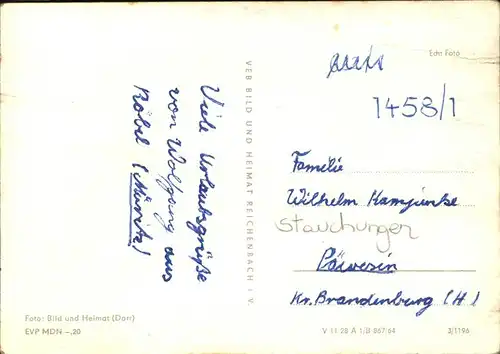 Viele Urlaubsgrüße
von Wolfgang aus
Röbel (Müritz)
VEB BILD UND HEIMAT REICHENBACH i. V.
Echt Foto
1458/1
Familie
Wilhelm Kamjunke
Stauchungen
Päwesin
Kr. Brandenburg (H.)
Foto: Bild und Heimat (Darr)
EVP MDN –,20
V 11 28 A 1/B 867/64
3/1196